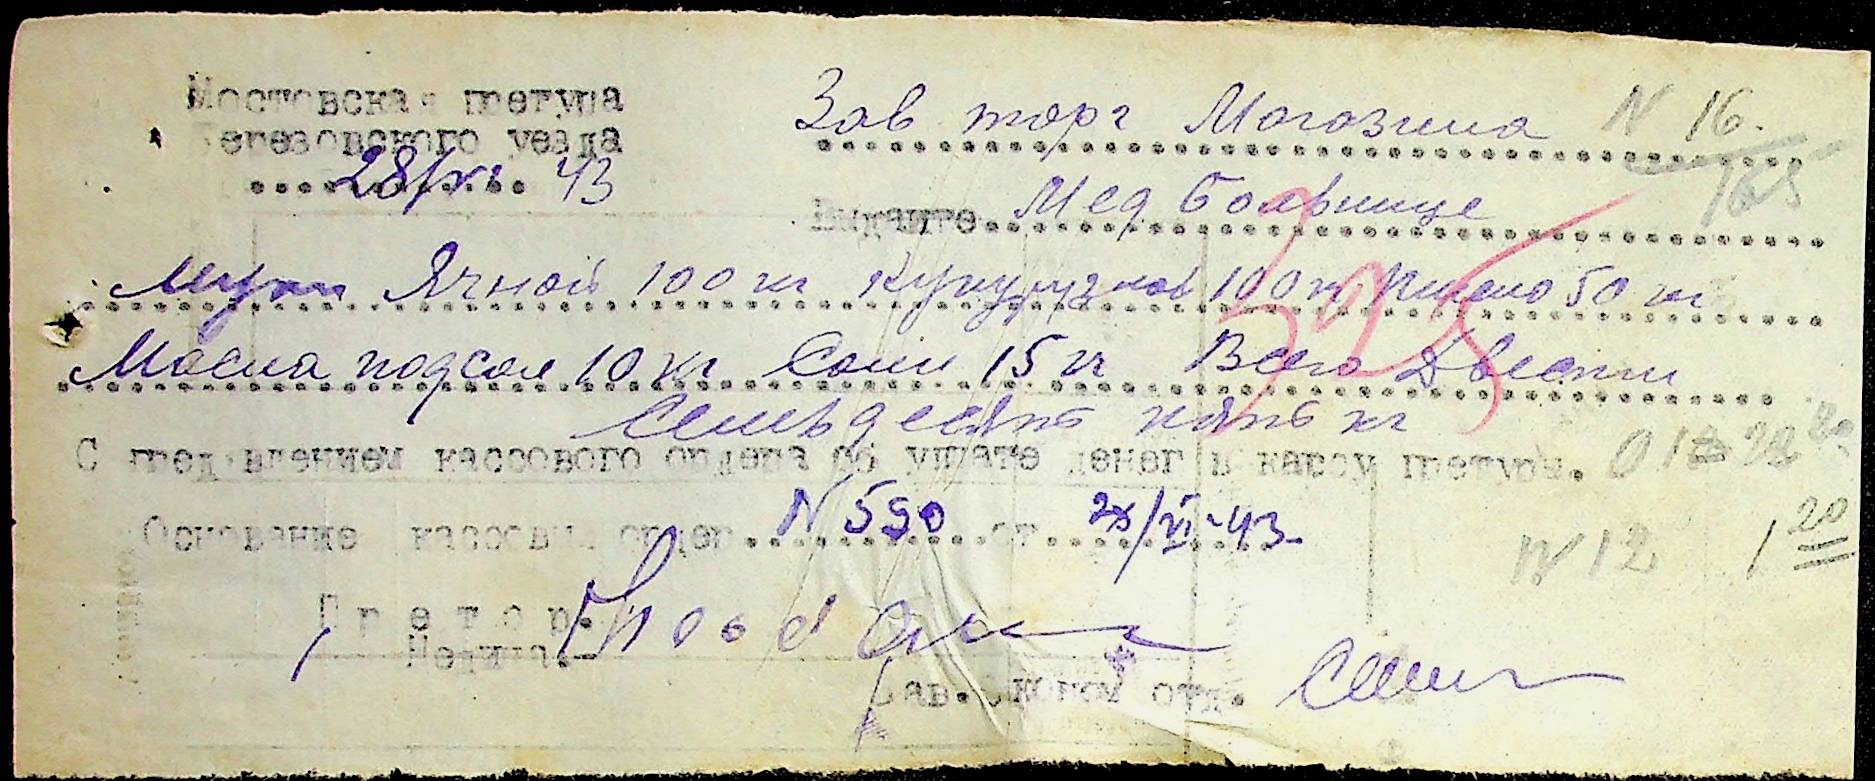 Мостовская претура
Березовского уезда
28/VI 43
Зав торг Магазина N 16.
165
Выдайте Мед Больнице
Муки Ячной 100 кг Кукурузной 100 кг 50 кг
Масла подсол 10 кг Соли 15 кг Всего Двести
Семьдесять пять кг
С предъявлением кассового ордера об уплате денег в кассу претуры.
Основание кассовый ордер N 590 от 28/VI-43
N 12 1 20
Претор.
Зав. эконом отд.